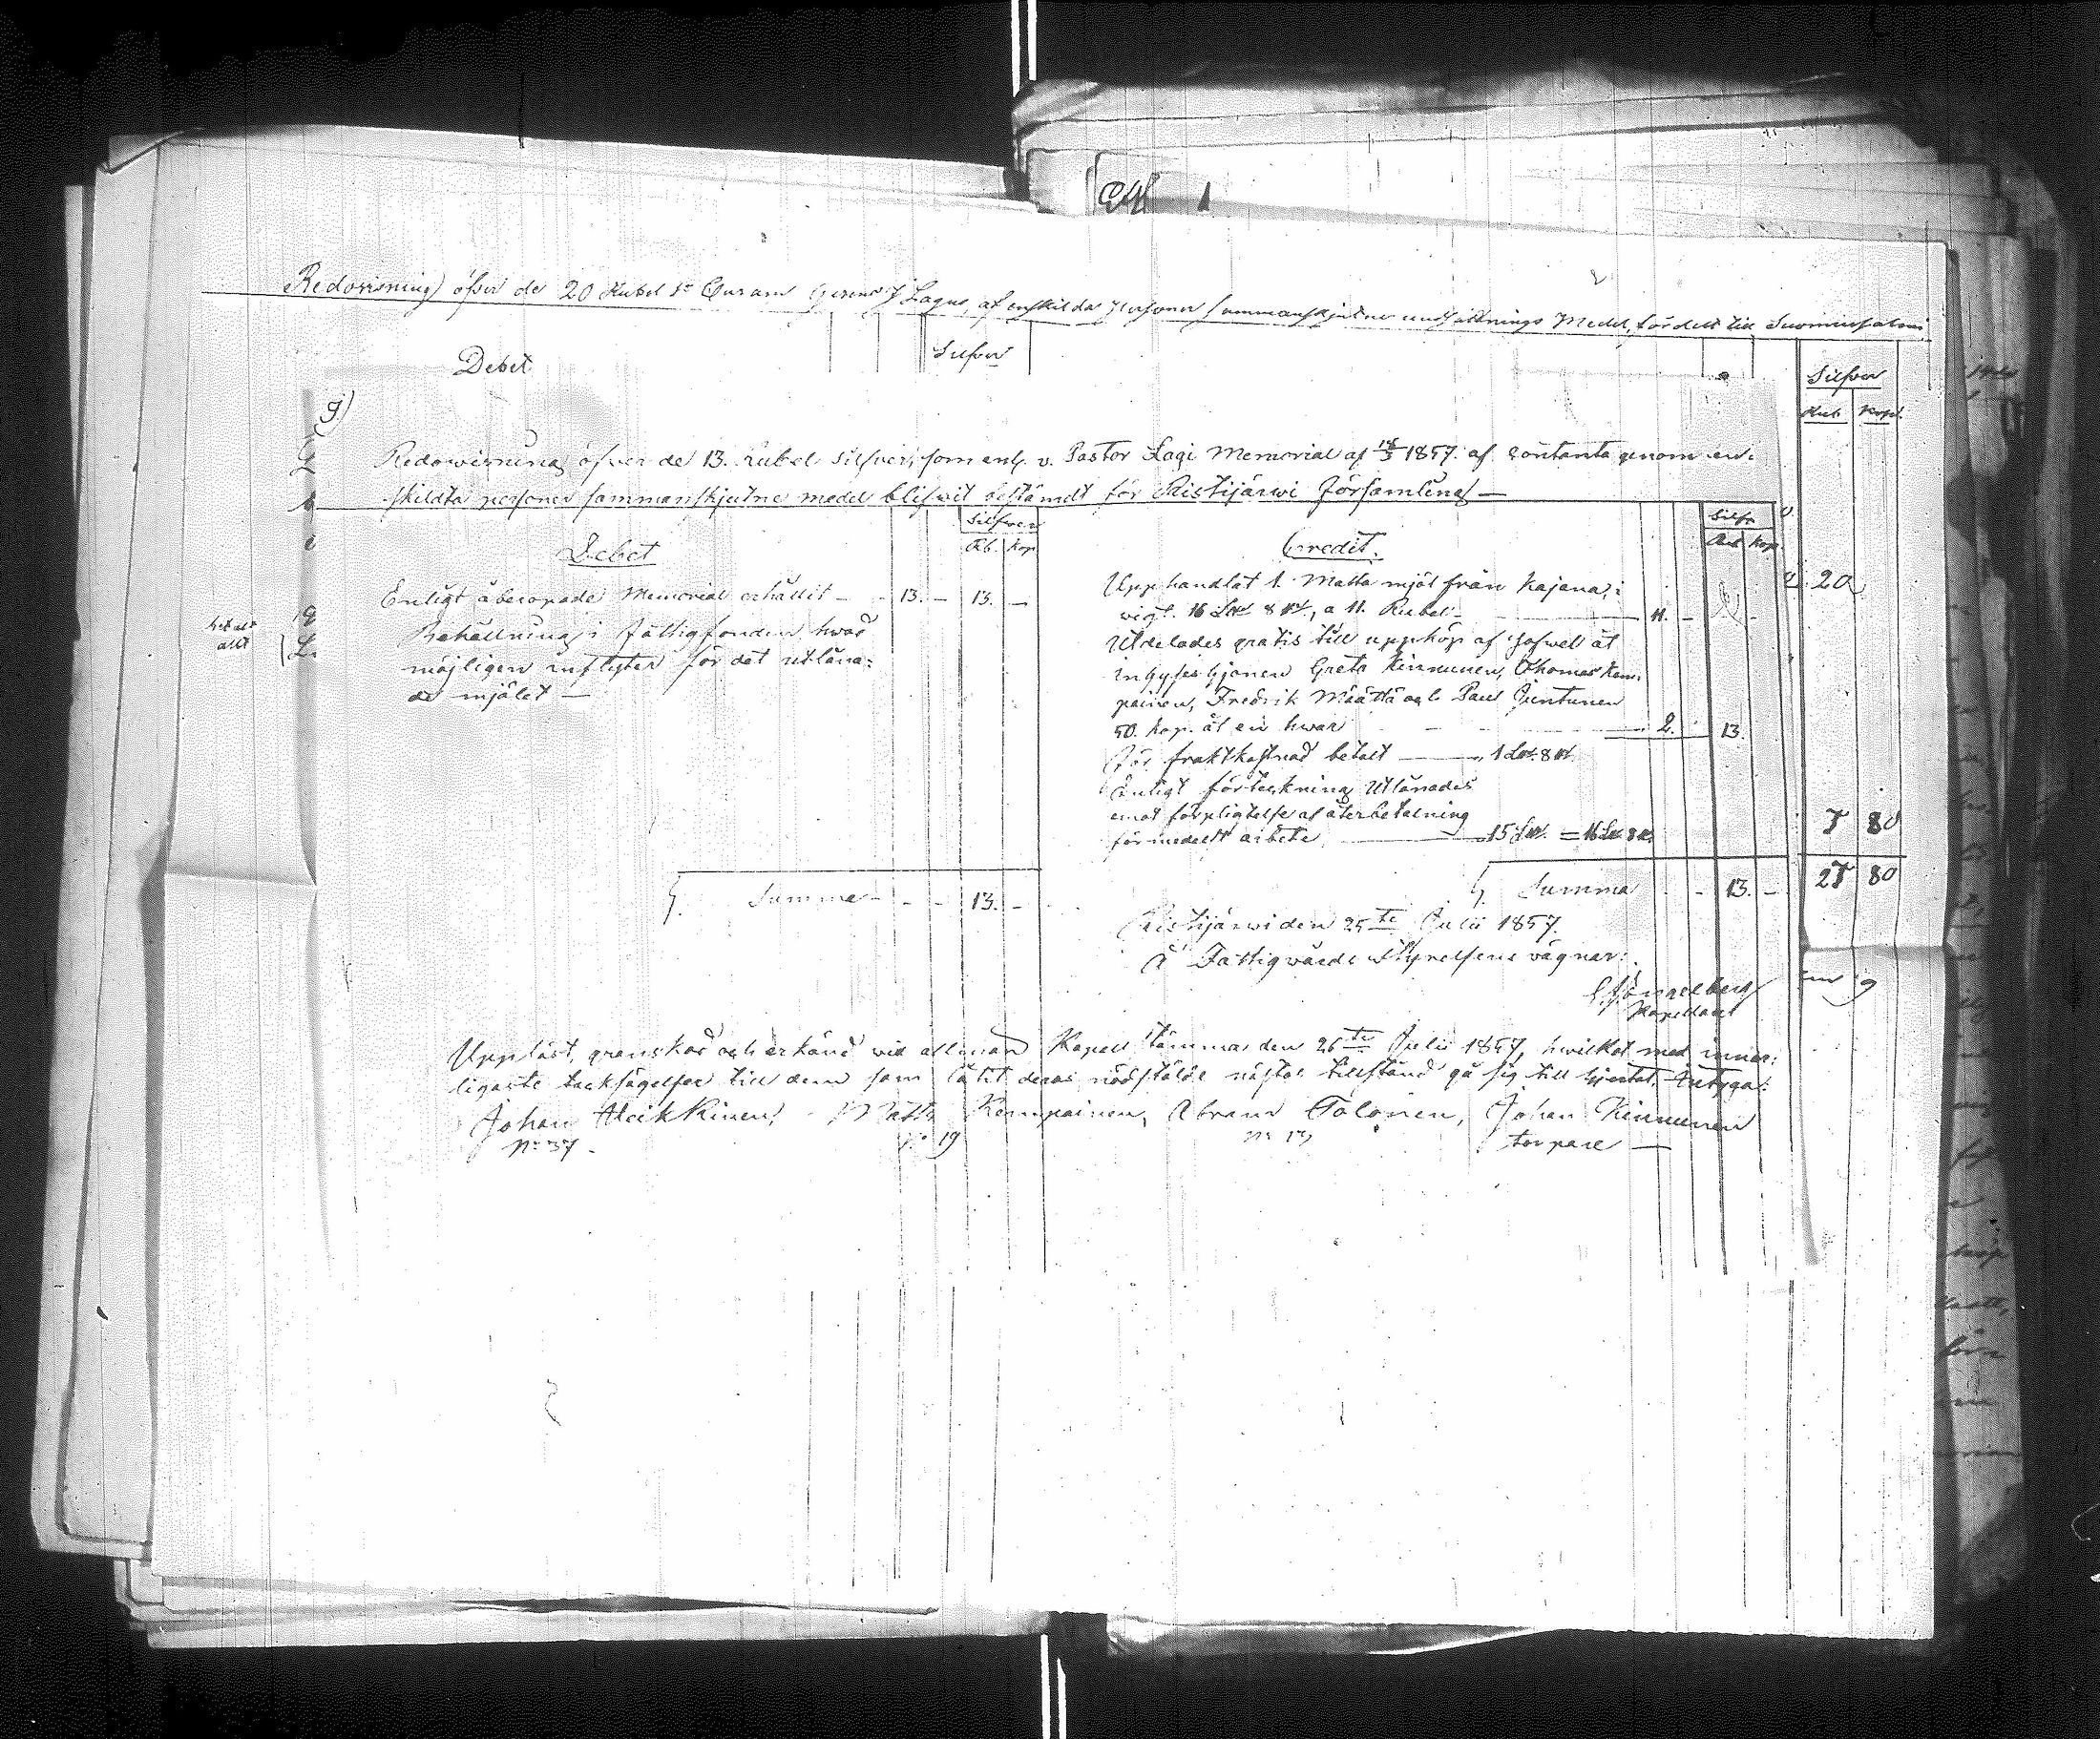 Redovisning öfver de 20 Rubel Sr Curam Gerens J Lagus, af enskilda personer sammanskjutne undsättnings Medel, för delt till Suomussalmi
Debet
Silfver
Silfver
Rub Kop.
9)
Redowisning öfver de 13. Rubel Silfver, som enl. v. Pastor Lagi Memorial af 1857. af contanta genom en-
skildta personer sammanskjutne medel blifwit bestämdt för Ristijärwi Församling —
Debet
Silfwer
Rb. Kop
Enligt åberopade Memorial erhållit — 13. — 13. —
Behållning i Fattigfonden hwad
möjligen inflyter för det utlåna-
de mjölet —
Summa — 13. —
Credit.
Silfr
Rub Kop
Upphandlat 1. Matta mjöl från Kajana,
wigt. 16 L℔ 8 ℔, a 11. Rubel — 11. —
Utdelades gratis till uppköp af Sofwel åt
inhyseshjonen Greta Kinnunen, Thomas Kem-
painen, Fredrik Määttä och Paul Juntunen
50. kop. åt en hwar — 2. 13.
För fraktkostnad betalt — 1 L℔. 8 ℔.
Enligt förteckning Utlånades
emot förpligtelse af återbetalning
förmedelst arbete — 15 L℔. = 16 L℔ 8 ℔.
Summa — 13. —
20
7 80
27 80
Ristijärwi den 25te Julii 1857.
å Fattigwårds Styrelsens vägnar:
Kapellan
Uppläst, granskad och erkänd wid allmän Kapell stämma den 26te Julii 1857, hwilket med inner-
ligaste tacksägelser till dem som låtit deras nödstälde nästas tillstånd gå sig till hjertat, betyga:
Johan Heikkinen, Matts Kempainen, Abram Tolonen, Johan Kinnunen
No 37. No 19 No 17 torpare —